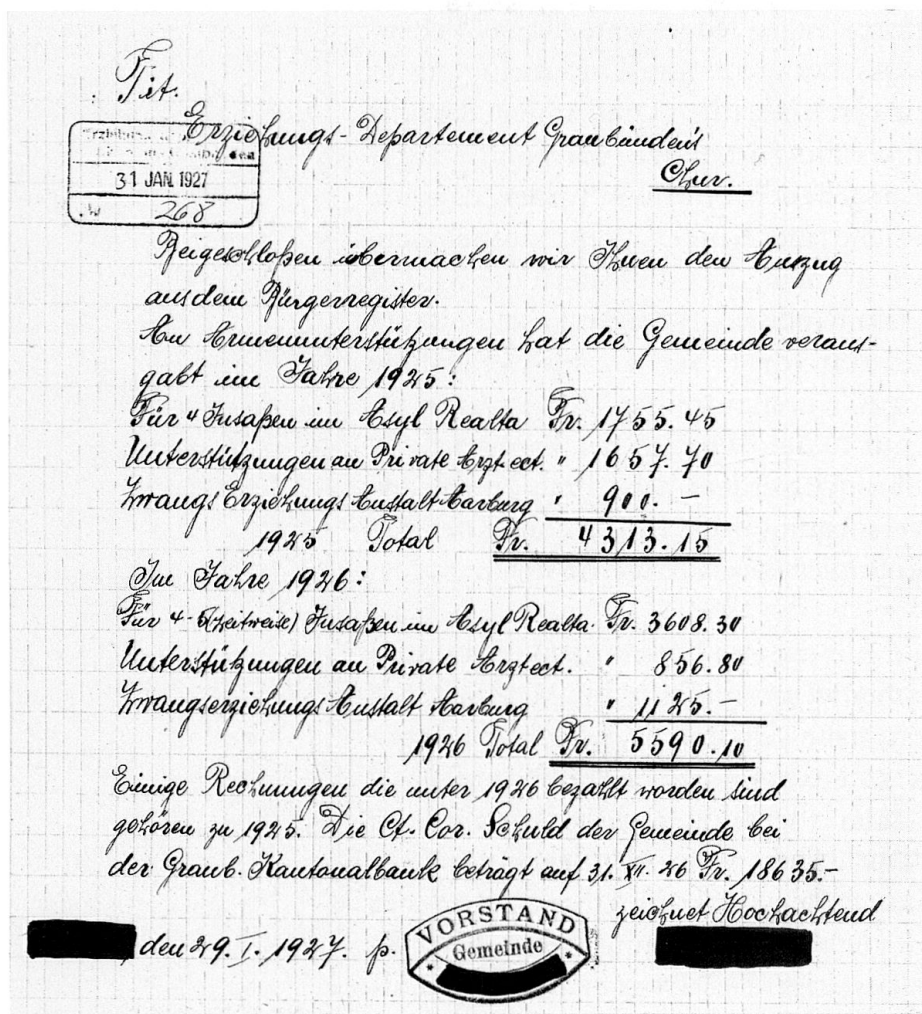 Tit.
Erziehungs-Departement Graubünden's
Chur.
31 JAN. 1927
268
Beigeschloßen übermachen wir Ihnen den Auszug
aus dem Bürgerregister.
An Armenunterstützungen hat die Gemeinde veraus-
gabt im Jahre 1925:
Für 4 Insaßen im Asyl Realta Fr. 1755.45
Unterstützungen an Private Arzt ect. " 1657.70
Zwangs Erziehungs Anstalt Aarburg " 900.-
1925 Total Fr. 4313.15
Im Jahre 1926:
Für 4-5 (zeitweise) Insaßen im Asyl Realta. Fr. 3608.30
Unterstützungen an Private Arzt ect. " 856.80
Zwangserziehungs Anstalt Aarburg " 1125.-
1926 Total Fr. 5590.10
Einige Rechnungen die unter 1926 bezahlt worden sind
gehören zu 1925. Die Ct. Cor. Schuld der Gemeinde bei
der Graub. Kantonalbank beträgt auf 31. XII. 26 Fr. 18635.-
zeichnet Hochachtend
, den 29. I. 1927. p.
VORSTAND
Gemeinde